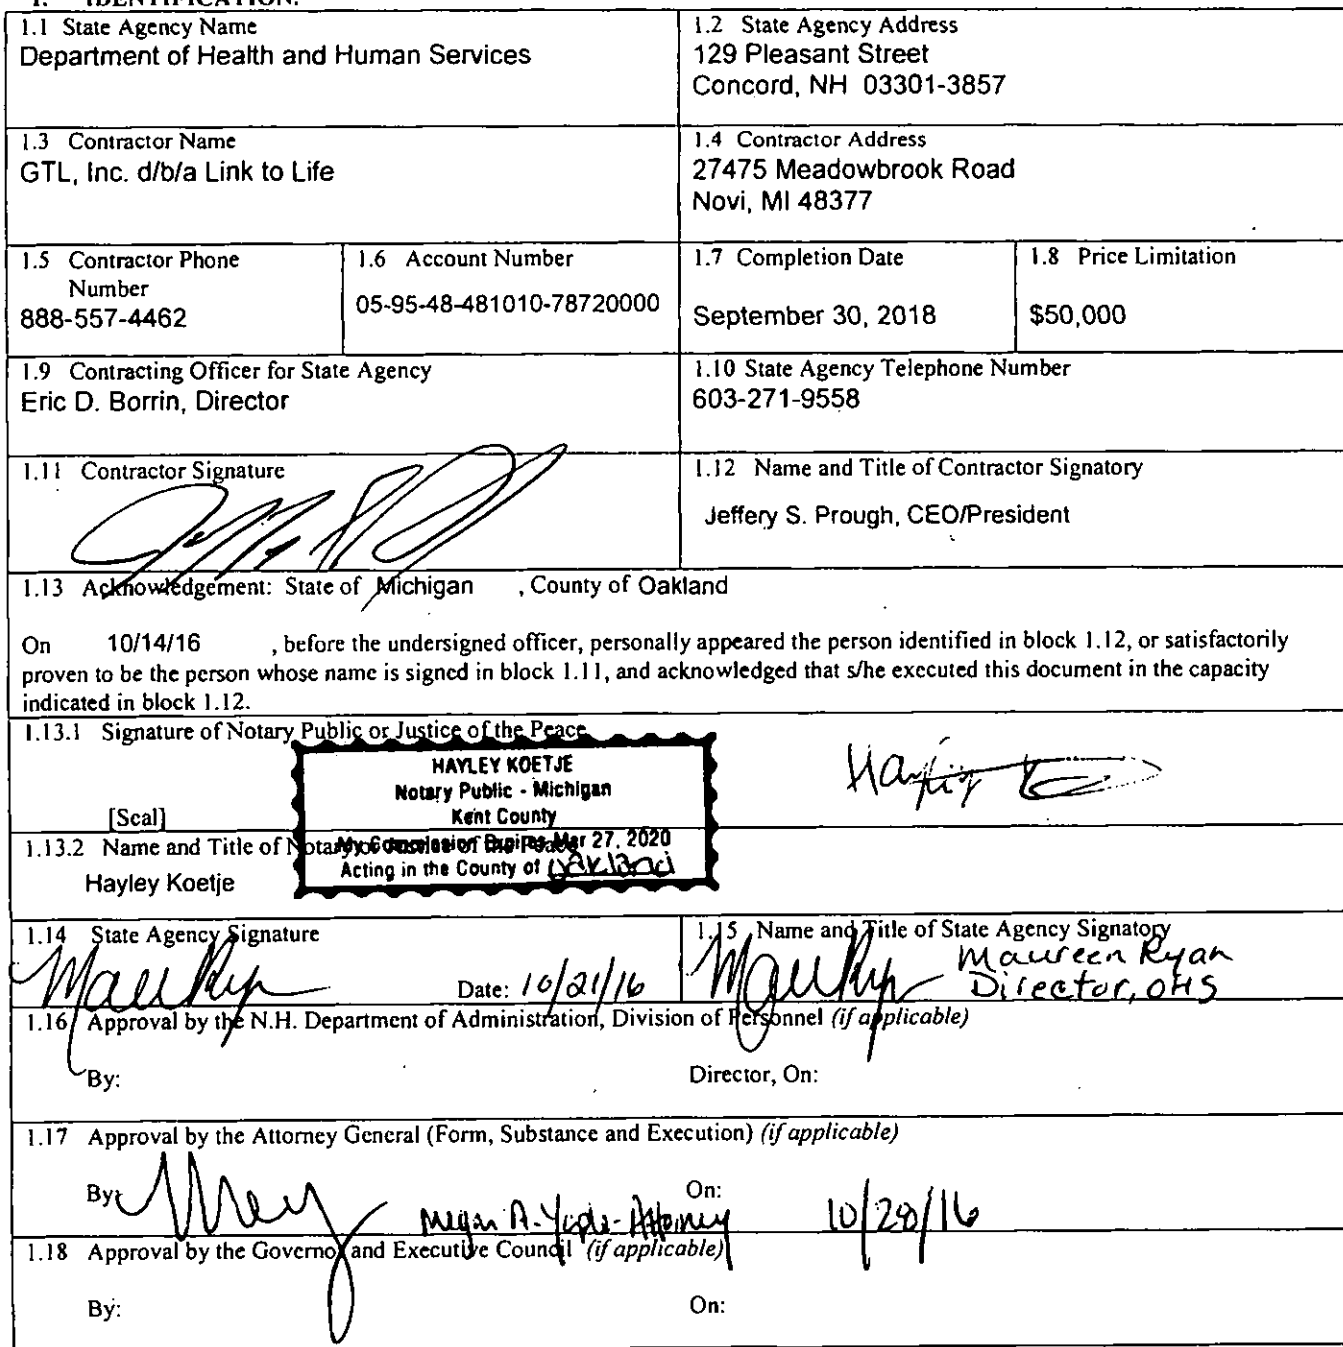 1. IDENTIFICATION.
1.1 State Agency Name
Department of Health and Human Services
1.2 State Agency Address
129 Pleasant Street
Concord, NH 03301-3857
1.3 Contractor Name
GTL, Inc. d/b/a Link to Life
1.4 Contractor Address
27475 Meadowbrook Road
Novi, MI 48377
1.5 Contractor Phone
Number
888-557-4462
1.6 Account Number
05-95-48-481010-78720000
1.7 Completion Date
September 30, 2018
1.8 Price Limitation
$50,000
1.9 Contracting Officer for State Agency
Eric D. Borrin, Director
1.10 State Agency Telephone Number
603-271-9558
1.11 Contractor Signature
1.12 Name and Title of Contractor Signatory
Jeffery S. Prough, CEO/President
1.13 Acknowledgement: State of Michigan , County of Oakland
On 10/14/16 , before the undersigned officer, personally appeared the person identified in block 1.12, or satisfactorily
proven to be the person whose name is signed in block 1.11, and acknowledged that s/he executed this document in the capacity
indicated in block 1.12.
1.13.1 Signature of Notary Public or Justice of the Peace
HAYLEY KOETJE
Notary Public - Michigan
Kent County
My Commission Expires Mar 27, 2020
Acting in the County of Oakland
[Seal]
1.13.2 Name and Title of Notary or Justice of the Peace
Hayley Koetje
1.14 State Agency Signature
Date: 10/21/16
1.15 Name and Title of State Agency Signatory
Maureen Ryan
Director, OHS
1.16 Approval by the N.H. Department of Administration, Division of Personnel (if applicable)
By:
Director, On:
1.17 Approval by the Attorney General (Form, Substance and Execution) (if applicable)
By:
Megan A. - Attorney
On:
10/28/16
1.18 Approval by the Governor and Executive Council (if applicable)
By:
On: